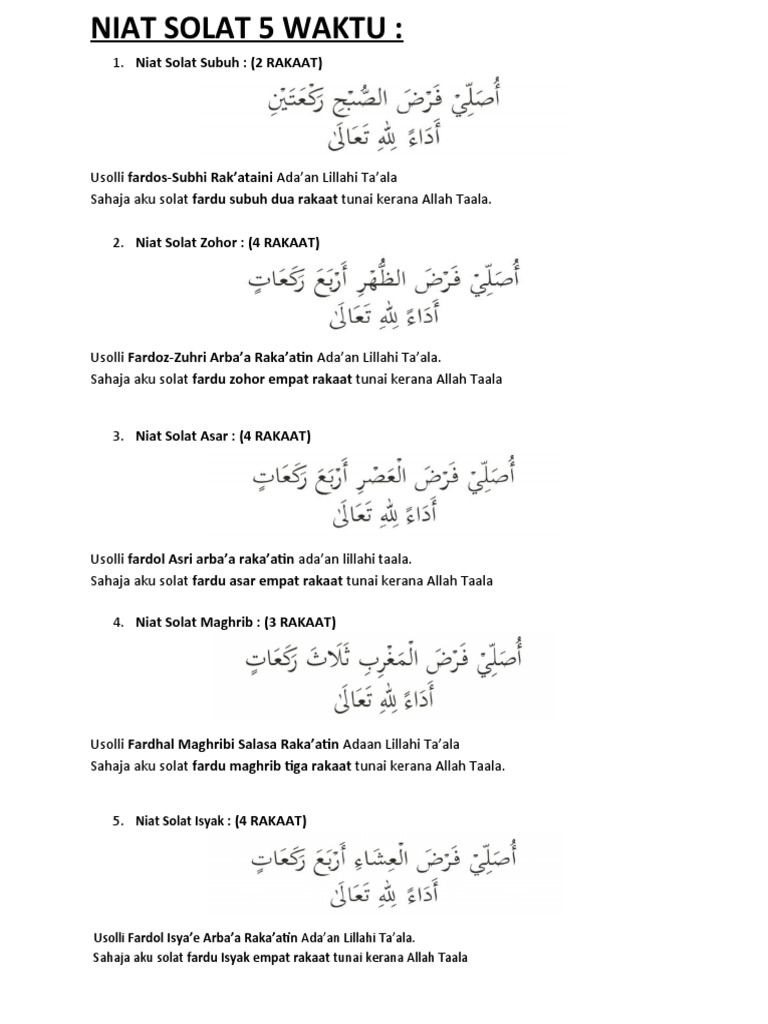 NIAT SOLAT 5 WAKTU :
1. Niat Solat Subuh : (2 RAKAAT)
أُصَلِّيْ فَرْضَ الصُّبْحِ رَكْعَتَيْنِ
أَدَاءً لِلّٰهِ تَعَالَىٰ
Usolli fardos-Subhi Rak’ataini Ada’an Lillahi Ta’ala
Sahaja aku solat fardu subuh dua rakaat tunai kerana Allah Taala.
2. Niat Solat Zohor : (4 RAKAAT)
أُصَلِّيْ فَرْضَ الظُّهْرِ أَرْبَعَ رَكَعَاتٍ
أَدَاءً لِلّٰهِ تَعَالَىٰ
Usolli Fardoz-Zuhri Arba’a Raka’atin Ada’an Lillahi Ta’ala.
Sahaja aku solat fardu zohor empat rakaat tunai kerana Allah Taala
3. Niat Solat Asar : (4 RAKAAT)
أُصَلِّيْ فَرْضَ الْعَصْرِ أَرْبَعَ رَكَعَاتٍ
أَدَاءً لِلّٰهِ تَعَالَىٰ
Usolli fardol Asri arba’a raka’atin ada’an lillahi taala.
Sahaja aku solat fardu asar empat rakaat tunai kerana Allah Taala
4. Niat Solat Maghrib : (3 RAKAAT)
أُصَلِّيْ فَرْضَ الْمَغْرِبِ ثَلَاثَ رَكَعَاتٍ
أَدَاءً لِلّٰهِ تَعَالَىٰ
Usolli Fardhal Maghribi Salasa Raka’atin Adaan Lillahi Ta’ala
Sahaja aku solat fardu maghrib tiga rakaat tunai kerana Allah Taala.
5. Niat Solat Isyak : (4 RAKAAT)
أُصَلِّيْ فَرْضَ الْعِشَاءِ أَرْبَعَ رَكَعَاتٍ
أَدَاءً لِلّٰهِ تَعَالَىٰ
Usolli Fardol Isya’e Arba’a Raka’atin Ada’an Lillahi Ta’ala.
Sahaja aku solat fardu Isyak empat rakaat tunai kerana Allah Taala